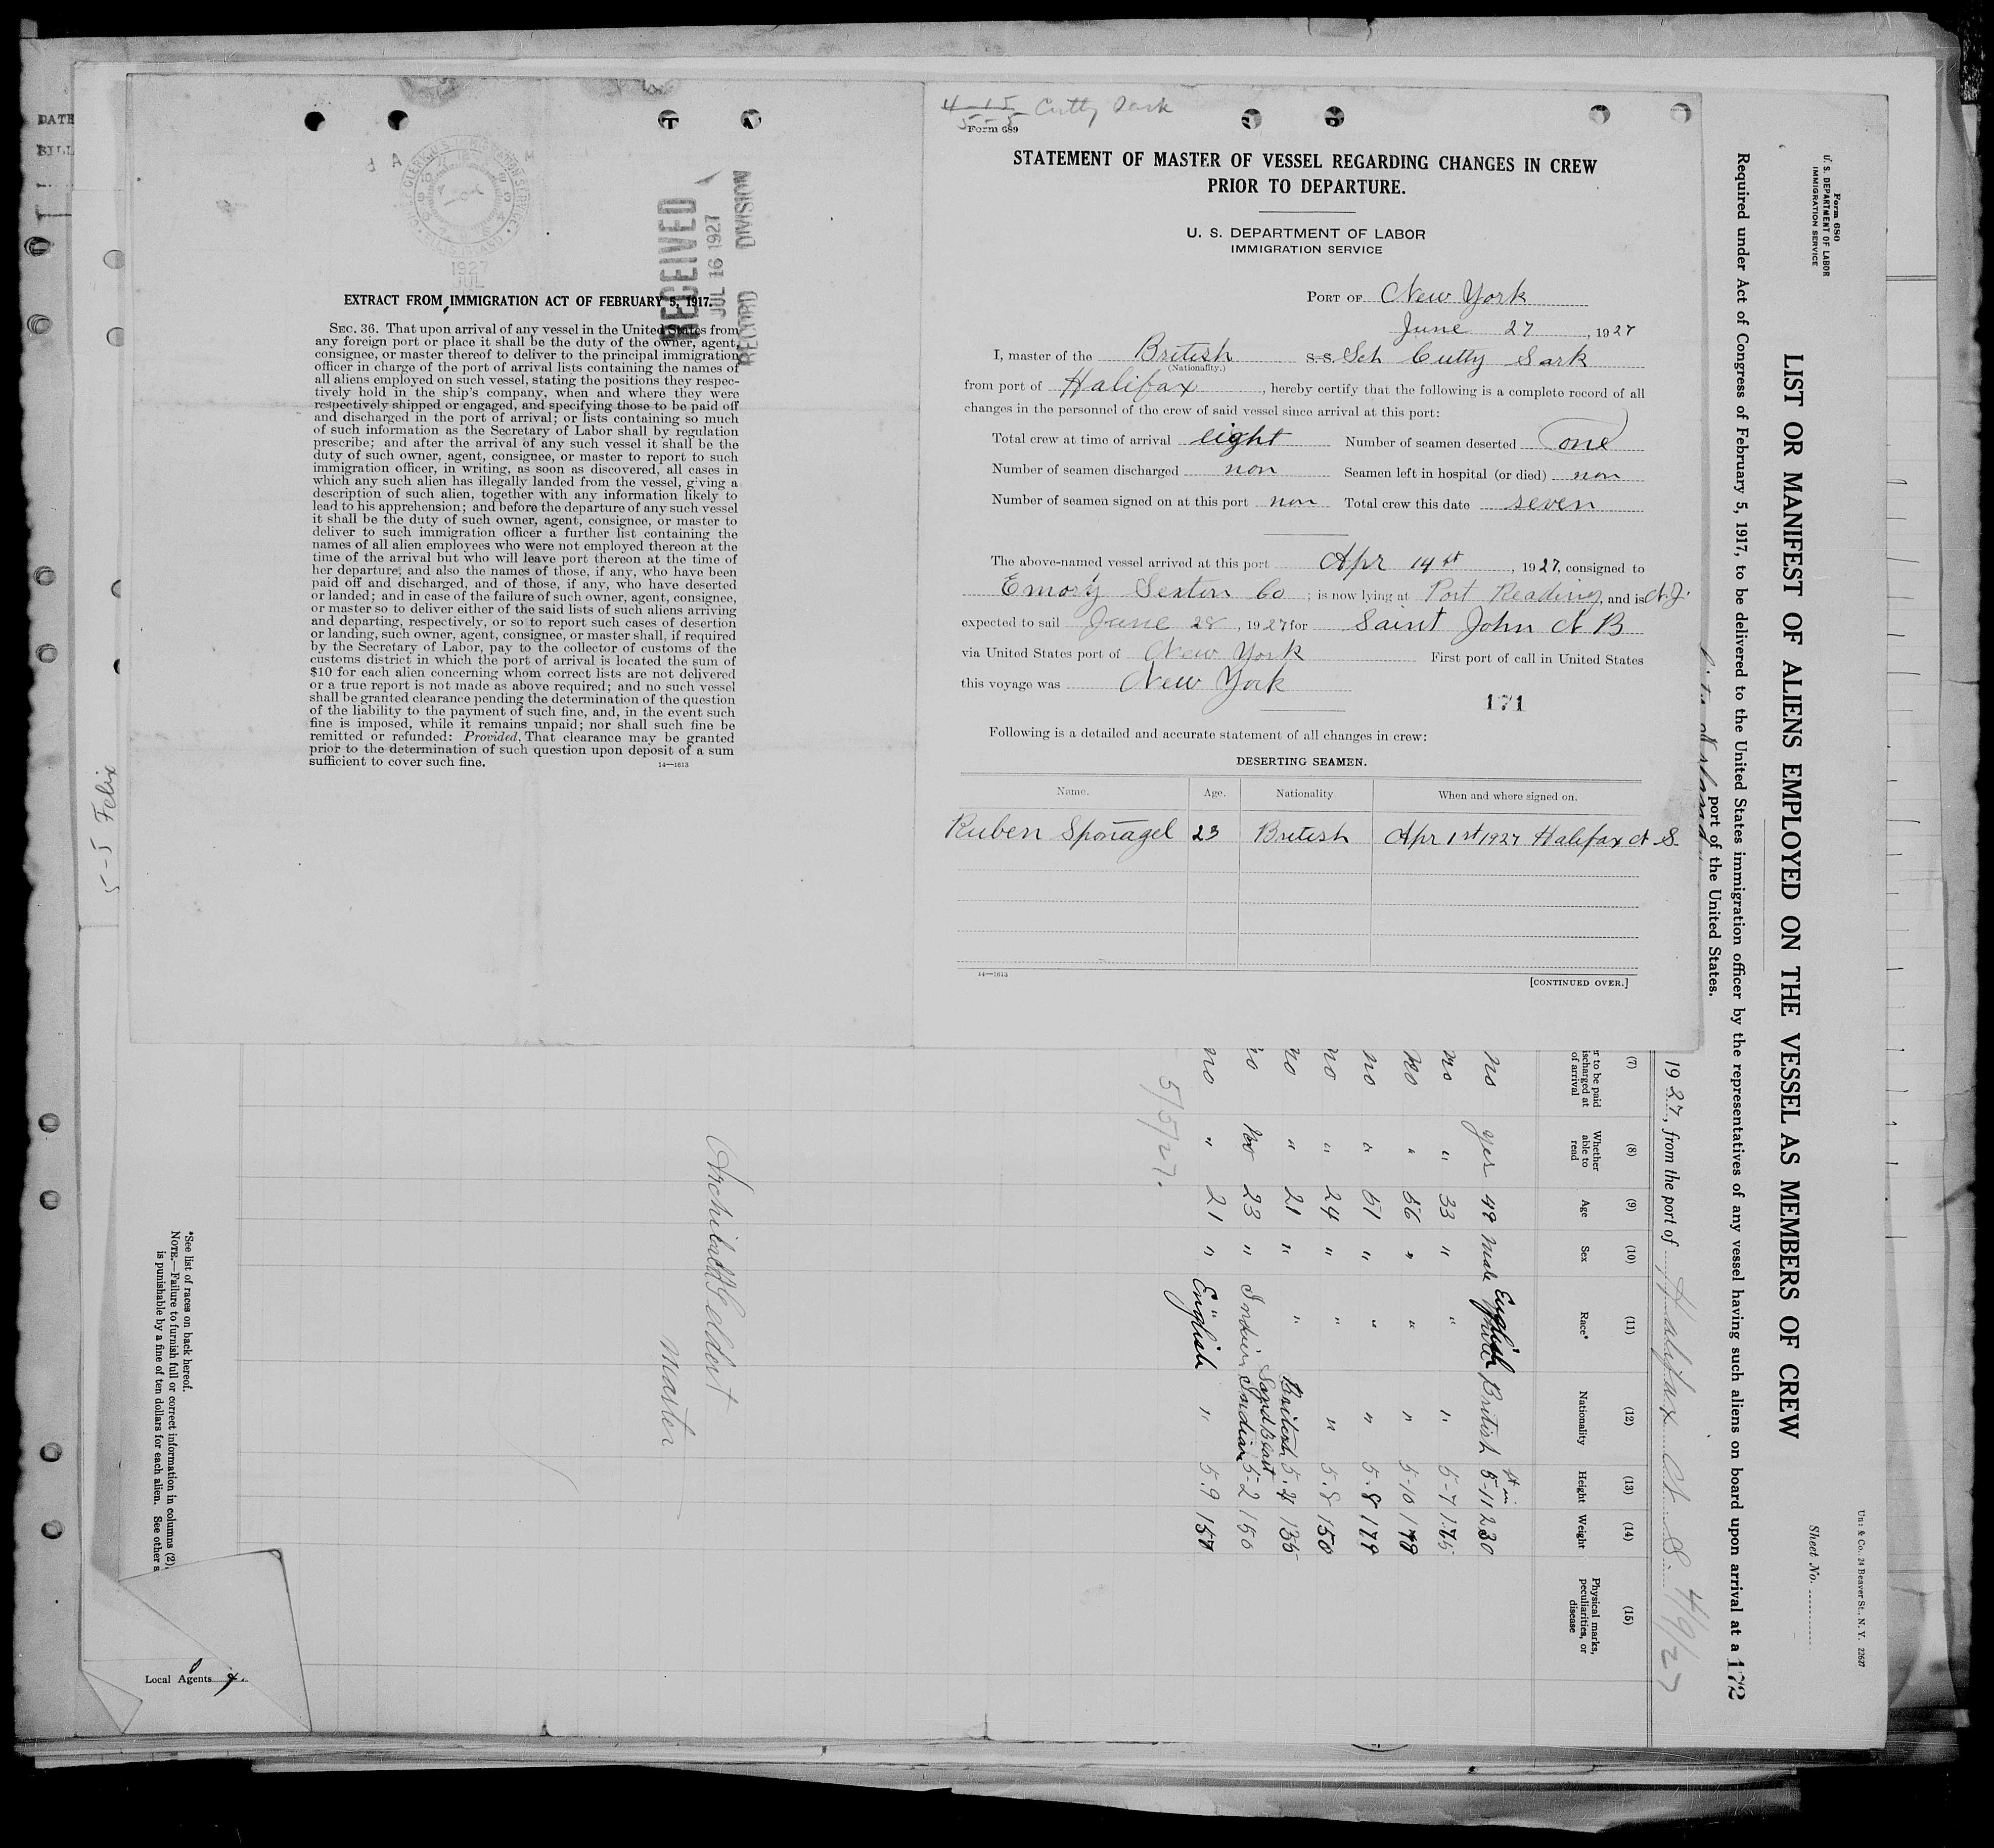 DATE
BILL
5-5 Felix
RECEIVED
JUL 16 1927
RECORD DIVISION
1927
JUL
EXTRACT FROM IMMIGRATION ACT OF FEBRUARY 5, 1917.
SEC. 36. That upon arrival of any vessel in the United States from
any foreign port or place it shall be the duty of the owner, agent,
consignee, or master thereof to deliver to the principal immigration
officer in charge of the port of arrival lists containing the names of
all aliens employed on such vessel, stating the positions they respec-
tively hold in the ship's company, when and where they were
respectively shipped or engaged, and specifying those to be paid off
and discharged in the port of arrival; or lists containing so much
of such information as the Secretary of Labor shall by regulation
prescribe; and after the arrival of any such vessel it shall be the
duty of such owner, agent, consignee, or master to report to such
immigration officer, in writing, as soon as discovered, all cases in
which any such alien has illegally landed from the vessel, giving a
description of such alien, together with any information likely to
lead to his apprehension; and before the departure of any such vessel
it shall be the duty of such owner, agent, consignee, or master to
deliver to such immigration officer a further list containing the
names of all alien employees who were not employed thereon at the
time of the arrival but who will leave port thereon at the time of
her departure, and also the names of those, if any, who have been
paid off and discharged, and of those, if any, who have deserted
or landed; and in case of the failure of such owner, agent, consignee,
or master so to deliver either of the said lists of such aliens arriving
and departing, respectively, or so to report such cases of desertion
or landing, such owner, agent, consignee, or master shall, if required
by the Secretary of Labor, pay to the collector of customs of the
customs district in which the port of arrival is located the sum of
$10 for each alien concerning whom correct lists are not delivered
or a true report is not made as above required; and no such vessel
shall be granted clearance pending the determination of the question
of the liability to the payment of such fine, and, in the event such
fine is imposed, while it remains unpaid; nor shall such fine be
remitted or refunded: Provided, That clearance may be granted
prior to the determination of such question upon deposit of a sum
sufficient to cover such fine.
14—1613
4-15 Cutty Sark
5-5
Form 689
STATEMENT OF MASTER OF VESSEL REGARDING CHANGES IN CREW
PRIOR TO DEPARTURE.
U. S. DEPARTMENT OF LABOR
IMMIGRATION SERVICE
PORT OF New York
June 27, 1927
I, master of the British S.S. Sch Cutty Sark
(Nationality.)
from port of Halifax, hereby certify that the following is a complete record of all
changes in the personnel of the crew of said vessel since arrival at this port:
Total crew at time of arrival eight Number of seamen deserted one
Number of seamen discharged non Seamen left in hospital (or died) non
Number of seamen signed on at this port non Total crew this date seven
The above-named vessel arrived at this port Apr 14st, 1927, consigned to
Emory Sexton Co; is now lying at Port Reading, and is N.J.
expected to sail June 28, 1927 for Saint John N B
via United States port of New York First port of call in United States
this voyage was New York
171
Following is a detailed and accurate statement of all changes in crew:
DESERTING SEAMEN.
Name. Age. Nationality When and where signed on.
Ruben Sponagel 23 British Apr 1st 1927 Halifax N S
14—1613
[CONTINUED OVER.]
Form 680
U. S. DEPARTMENT OF LABOR
IMMIGRATION SERVICE
24 Beaver St., N. Y. 22627
Sheet No.
LIST OR MANIFEST OF ALIENS EMPLOYED ON THE VESSEL AS MEMBERS OF CREW
Required under Act of Congress of February 5, 1917, to be delivered to the United States immigration officer by the representatives of any vessel having such aliens on board upon arrival at a 172
port of the United States.
1927, from the port of Halifax N. S. 4/9/27
(7) (8) (9) (10) (11) (12) (13) (14) (15)
r to be paid
ischarged at
of arrival
Whether
able to
read
Age
Sex
Race*
Nationality
Height
Weight
Physical marks,
peculiarities, or
disease
ft in
no yes 49 male English British 5-11 230
no " 33 " " " 5-7 175
no " 56 " " " 5-10 178
no " 51 " " " 5-8 179
no " 24 " " " 5-8 150
no " 21 " " British 5-4 135
no no 23 " Indian Indian 5-2 150
no " 21 " English " 5-9 157
5/5/27.
Master
*See list of races on back hereof.
NOTE.—Failure to furnish full or correct information in columns (2)
is punishable by a fine of ten dollars for each alien. See other s
Local Agents